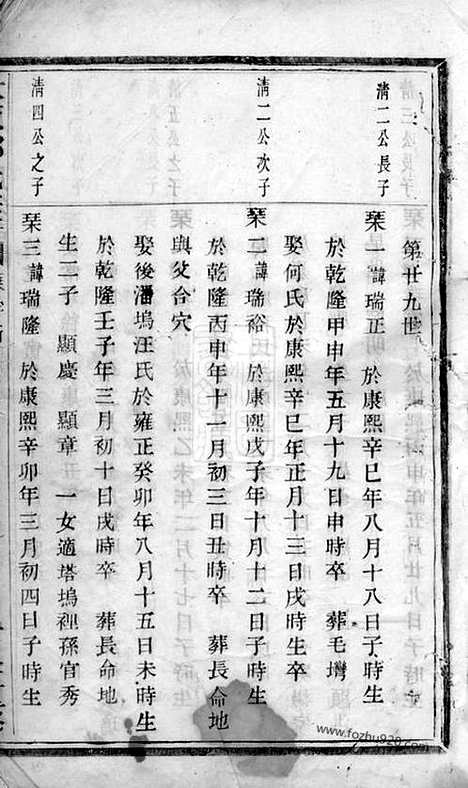 第廿九世
清二公長子
琹一諱瑞正 於康熙辛巳年八月十八日子時生
於乾隆甲申年五月十九日申時卒 葬毛灣
娶何氏於康熙辛巳年正月十三日戌時生卒
清二公次子
琹二諱瑞裕 於康熙戊子年十月十二日子時生
於乾隆丙申年十一月初三日丑時卒 葬長命地
與父合穴
娶後潘塢汪氏於雍正癸卯年八月十五日未時生
於乾隆壬子年三月初十日戌時卒 葬長命地
生二子 顯慶 顯章 一女適塔塢裡孫官秀
清四公之子
琹三諱瑞隆 於康熙辛卯年三月初四日子時生
www.fozhu920.com